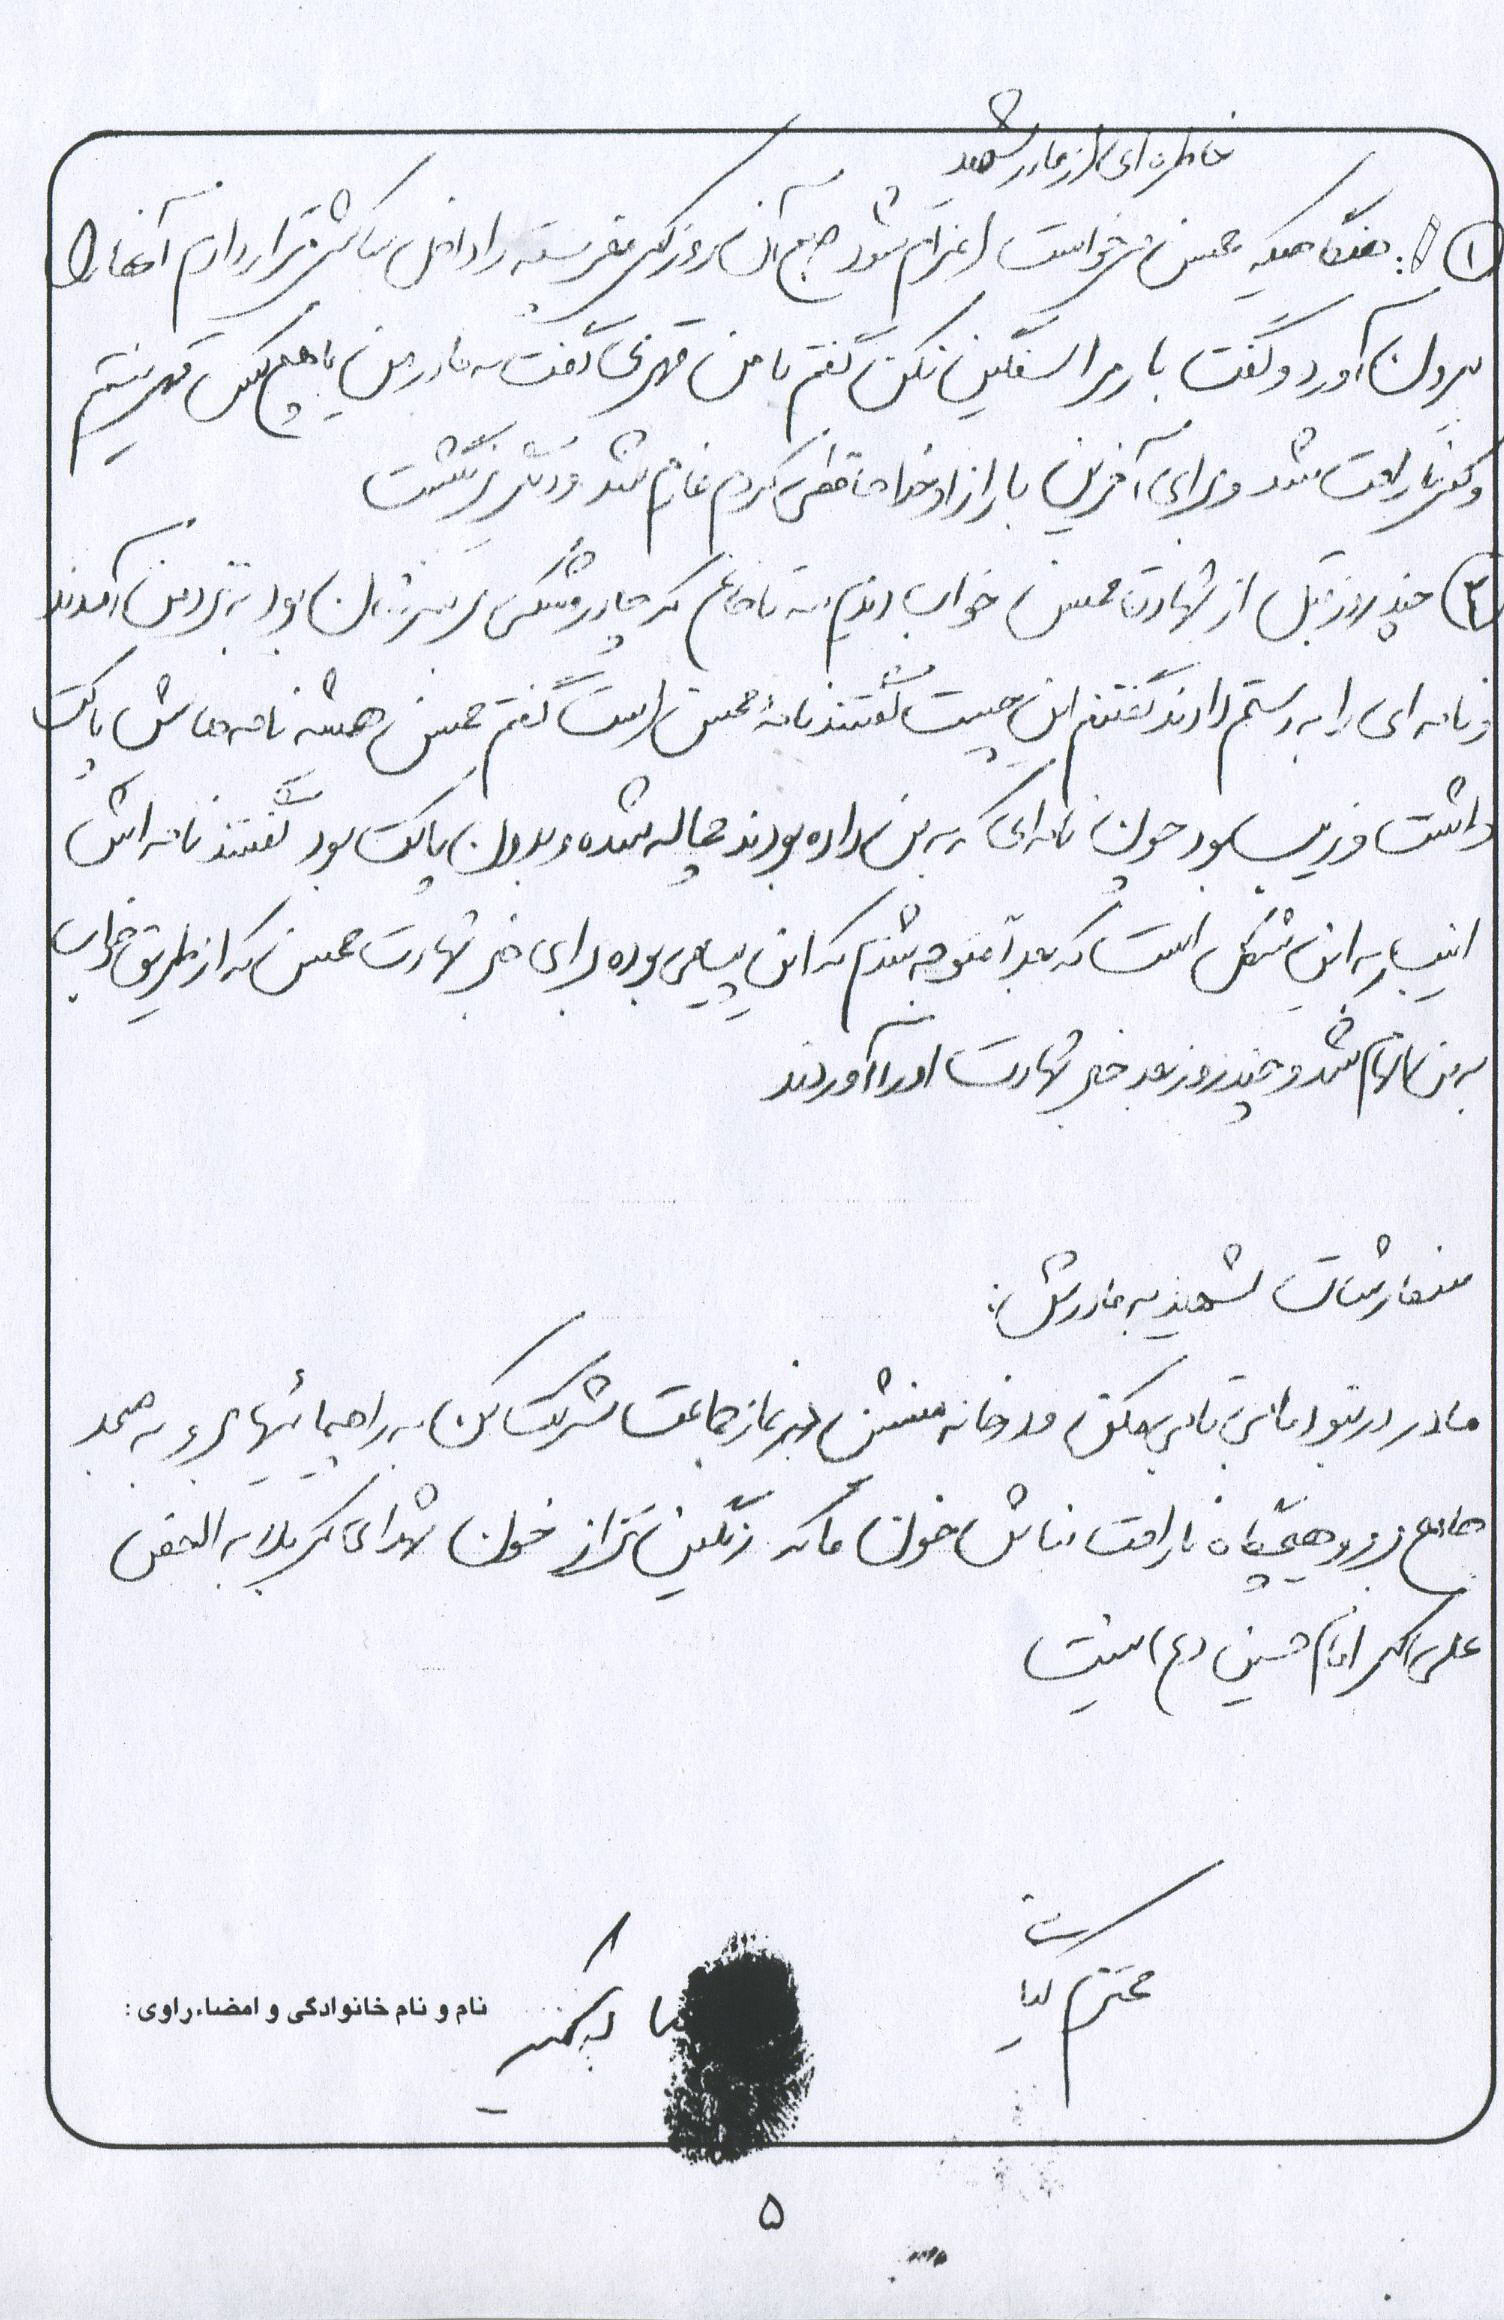 خاطره ای از مادر شهید
۱ : هنگامیکه محسن می خواست اعزام شود صبح آن روز کمی پسته را داخل ساکش قرار دادم آنها را
بیرون آورد و گفت بار مرا سنگین نکن گفتم با من قهری گفت نه مادر من با هیچ کس قهر نیستم
و کمی ناراحت شد و برای آخرین بار از او خدا حافظی کردم عازم شد و دیگر برنگشت
۲ چند روز قبل از شهادت محسن خواب دیدم سه تا خانم که چادر مشکی بر سرشان بود به نزد من آمدند
و نامه ای را به دستم دادند گفتم این چیست گفتند نامهٔ محسن است گفتم محسن همیشه نامه هایش پاکت
داشت و مرتب بود چون نامه ای که به من داده بودند مچاله شده و بدون پاکت بود گفتند نامه اش
اینبار به این شکل است که بعداً متوجه شدم که این پیامی بوده برای خبر شهادت محسن که از طریق خواب
به من الهام شد و چند روز بعد خبر شهادت او را آوردند
سفارشات شهید به مادرش:
مادر در نبود ما بی تابی مکن و در خانه منشین در نماز جماعت شرکت کن به راهپیمائیها برو به مسجد
جامع برو و هیچگاه ناراحت نباش خون ما که رنگین تر از خون شهدای کربلا به الخص
علی اکبر امام حسین (ع) نیست
محترم کیا
نام و نام خانوادگی و امضاء راوی :
۵